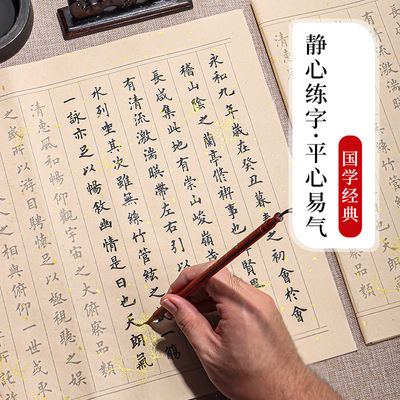 静心练字·平心易气
国学经典
永和九年歲在癸丑暮春之初會於會
稽山陰之蘭亭修禊事也 賢
長咸集此地有崇山峻嶺
有清流激湍暎帶左右引以
水列坐其次雖無絲竹管絃之 一觴
一詠亦足以暢敘幽情是日也天朗氣
清惠風和暢仰觀宇宙之大俯察品類
所以游目騁懷足以極視聽之娛
之相與俯仰一世或